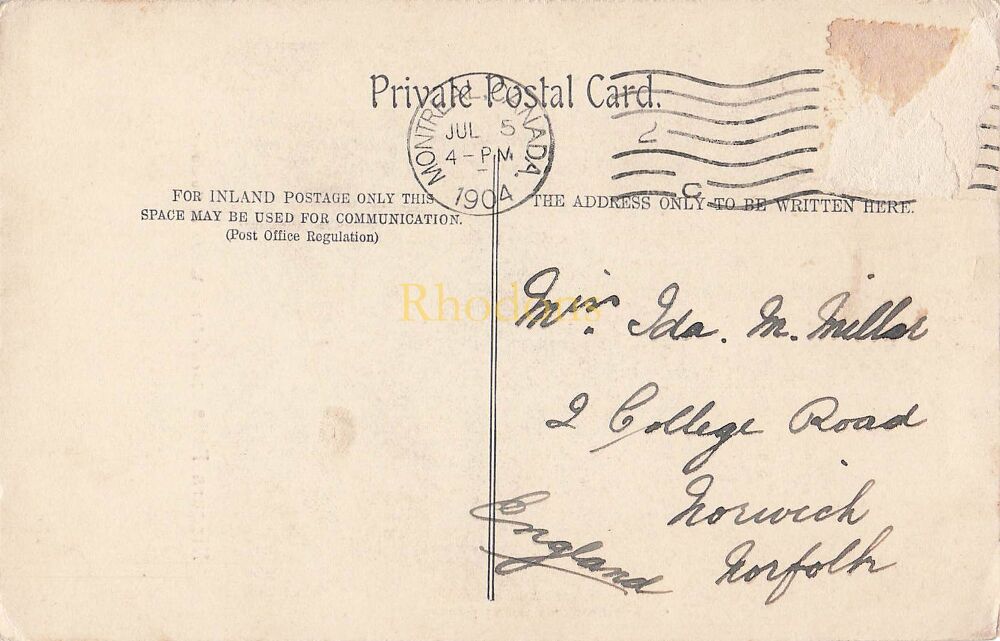 Private Postal Card.
MONTREAL, CANADA,
JUL 5
4-PM
1904
2
C
FOR INLAND POSTAGE ONLY THIS
SPACE MAY BE USED FOR COMMUNICATION.
(Post Office Regulation)
THE ADDRESS ONLY TO BE WRITTEN HERE.
Rhodons
Miss. Ida. M. Millar
2 College Road
Norwich
Norfolk
England